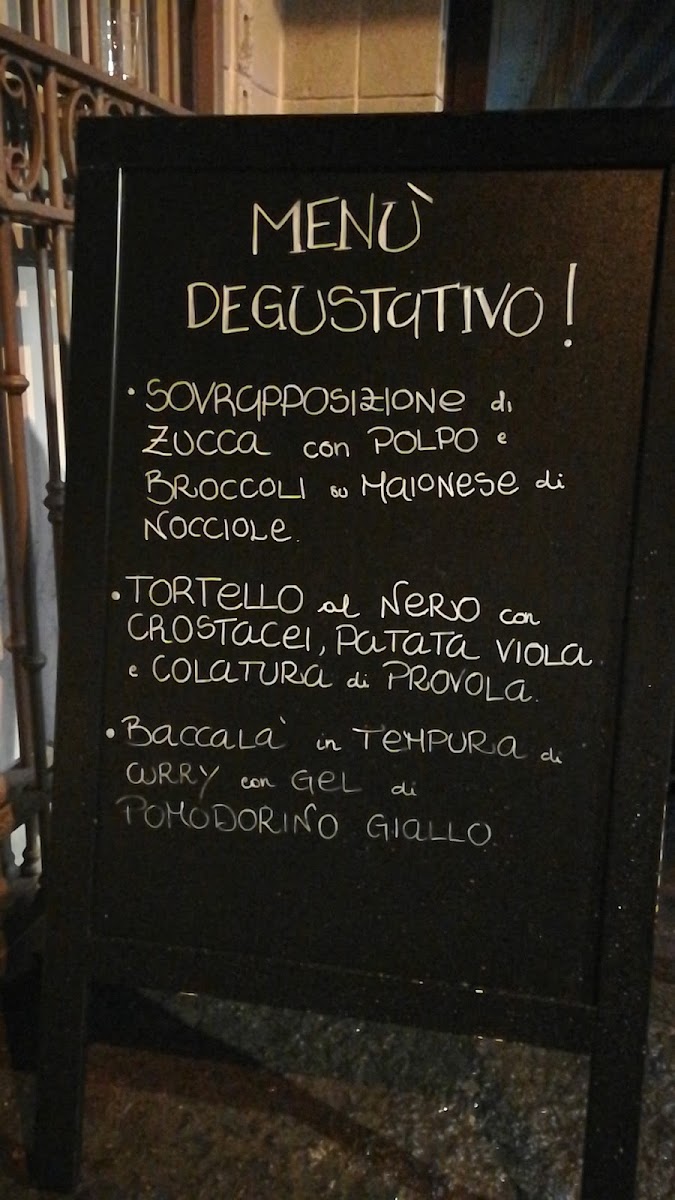 MENÙ
DEGUSTATIVO!
• SOVRAPPOSIZIONE di
ZUCCA con POLPO e
BROCCOLI su MAIONESE di
NOCCIOLE.
• TORTELLO al NERO con
CROSTACEI, PATATA VIOLA
e COLATURA di PROVOLA.
• BACCALÀ in TEMPURA di
CURRY con GEL di
POMODORINO GIALLO